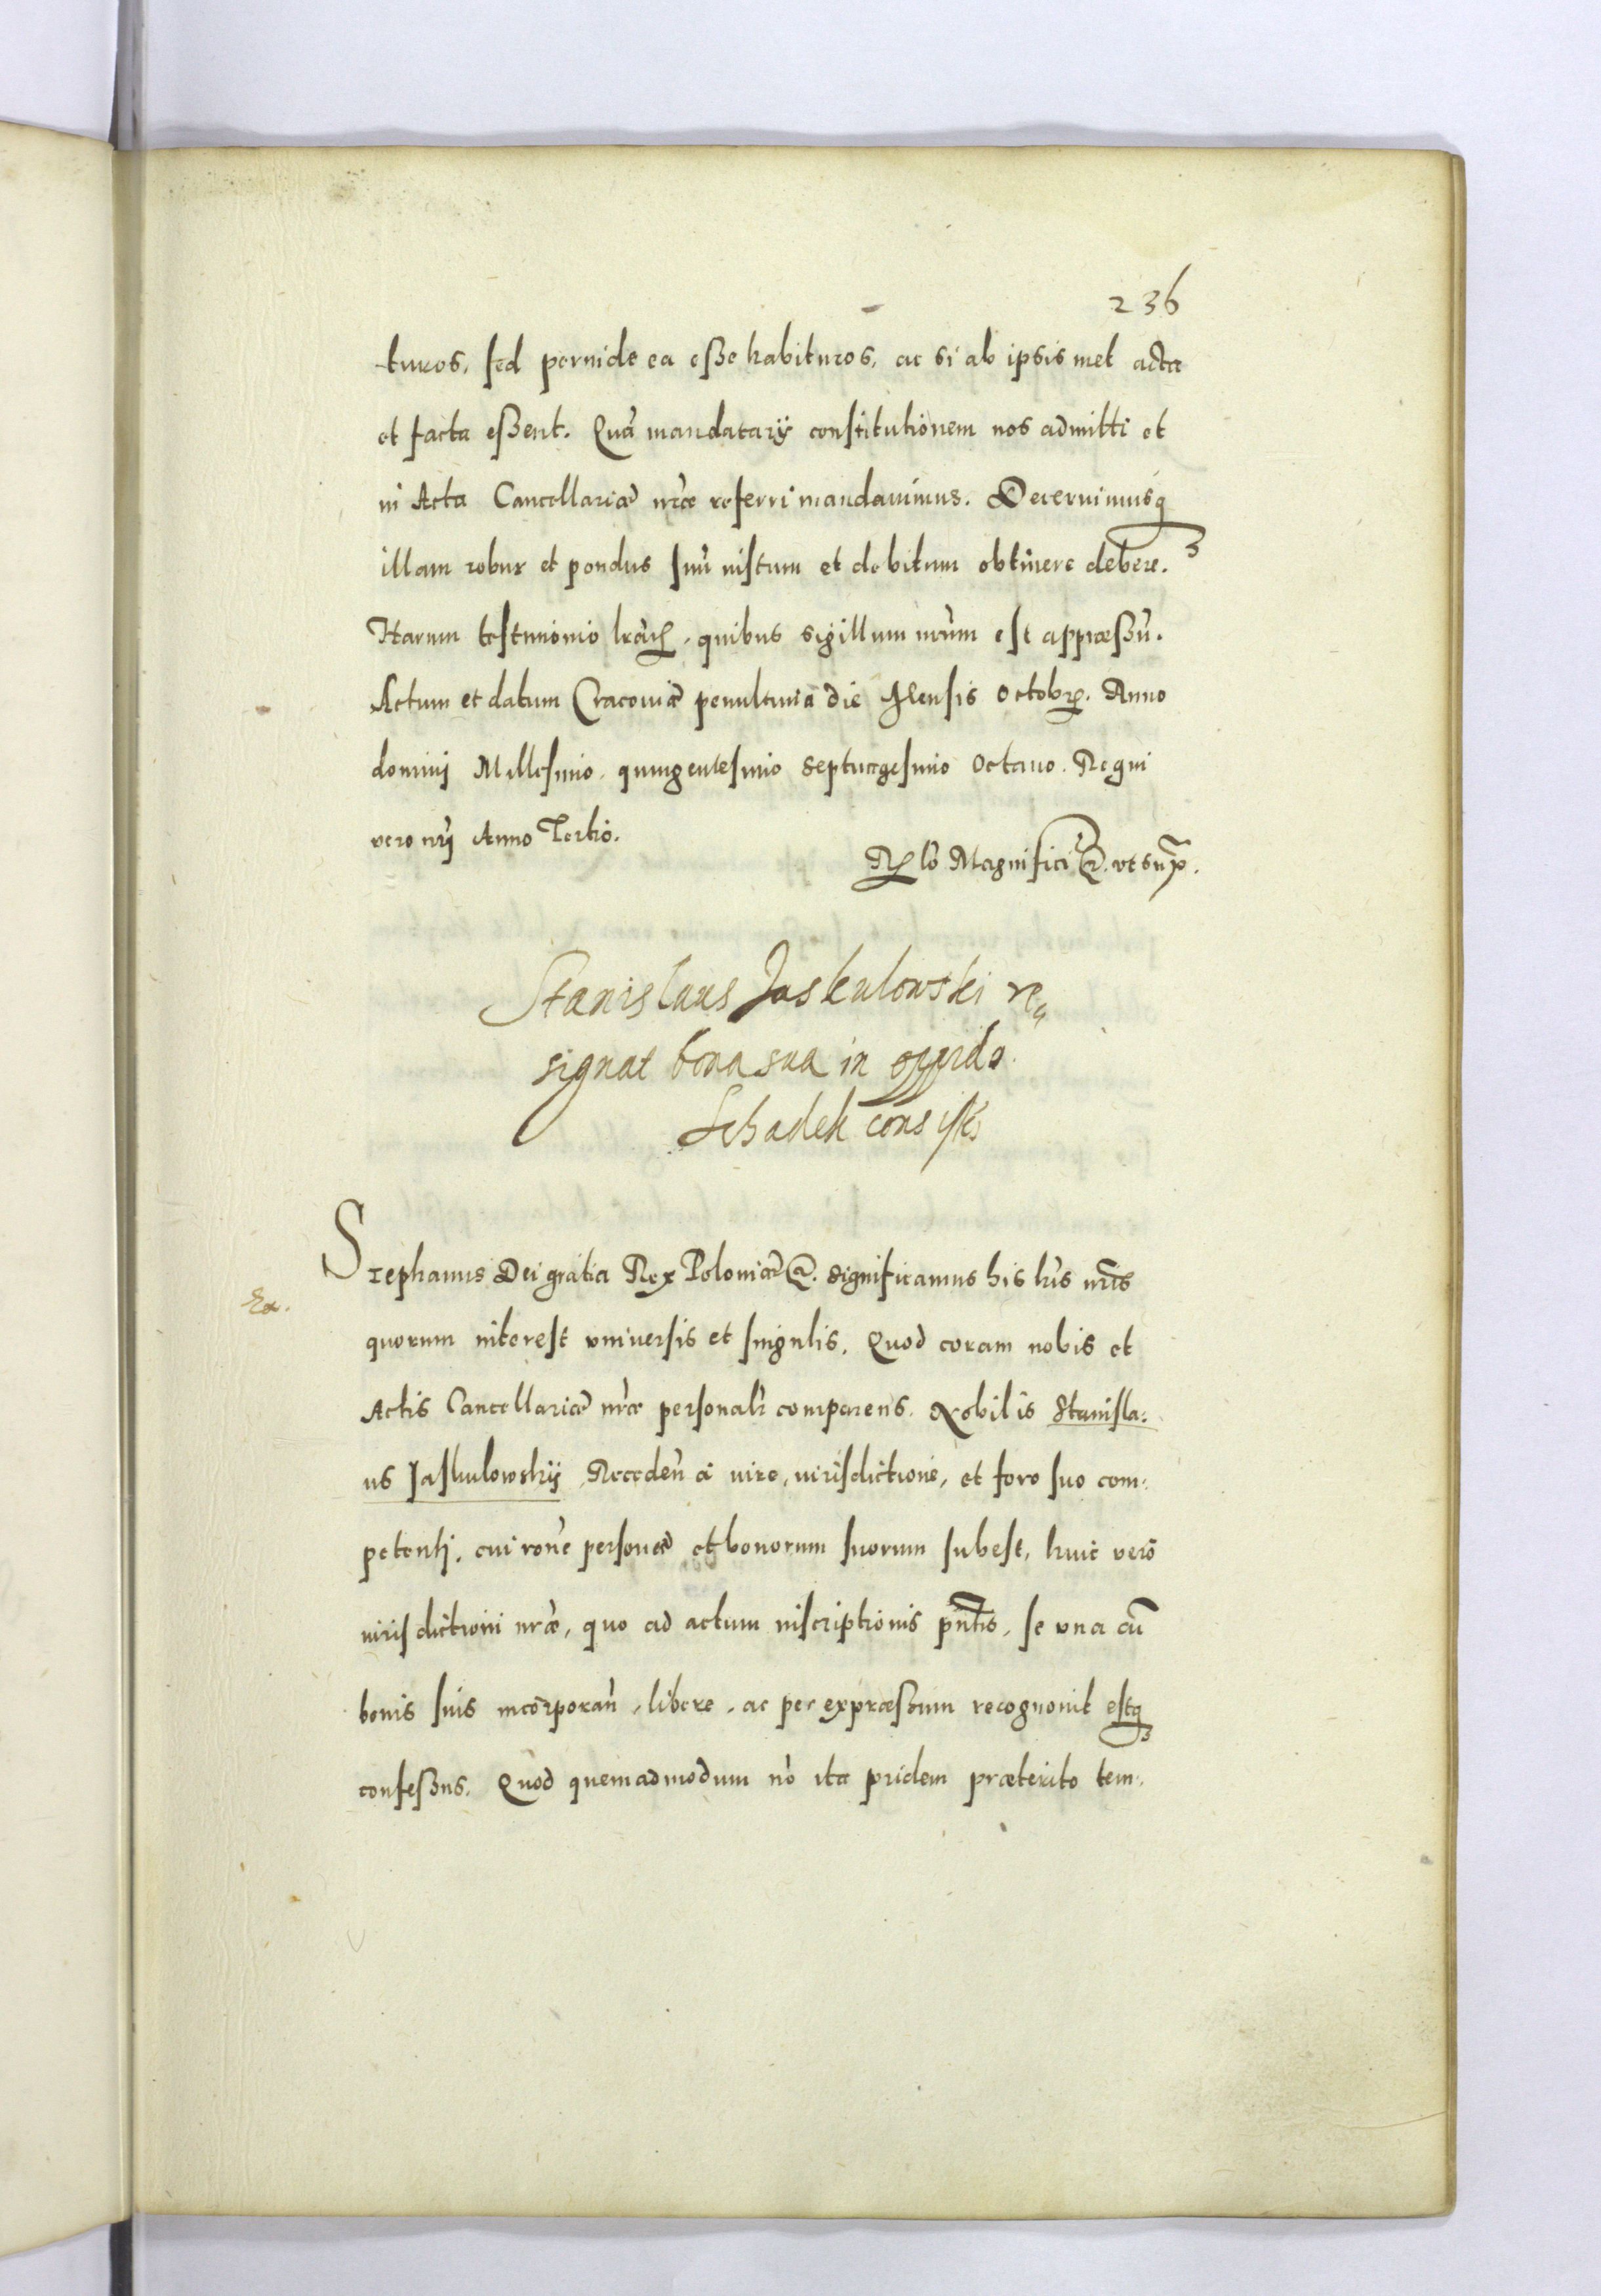 236
turos, sed perinde ea esse habituros, ac si ab ipsis met acta
et facta essent. Quā mandatarij constitutionem nos admitti et
in Acta Cancellariae nr̄ae referri mandavimus. Decernimusq;
illam robur et pondus suū iustum et debitum obtinere debere.
Harum testimonio lrarū, quibus sigillum nrūm est appraessū.
Actum et datum Cracoviae penultima die Mensis Octobrs. Anno
domini Millesimo quingentesimo Septuagesimo Octavo. Regni
vero nrī Anno Tertio.
Rlo Magnifici etc. ut supra.
Stanislaus Jaskulowski re„
signat bona sua in oppido
Schadek consis
Stephanus Dei gratia Rex Poloniae etc. Significamus his lrīs nrīs
quorum interest universis et singulis. Quod coram nobis et
Actis Cancellariae nrāe personalr comparens Nobilis Stanisla:
us Jaskulowskij Recedeñ a iure, iurisdictione, et foro suo com:
petenti, cui rone personae et bonorum suorum subest, huic vero
iurisdictioni nrāe, quo ad actum inscriptionis pntis, se una cū
bonis suis incorporañ, libere, ac per expraessum recognovit estq;
confessus. Quod quemadmodum nō ita pridem praeterito tem: